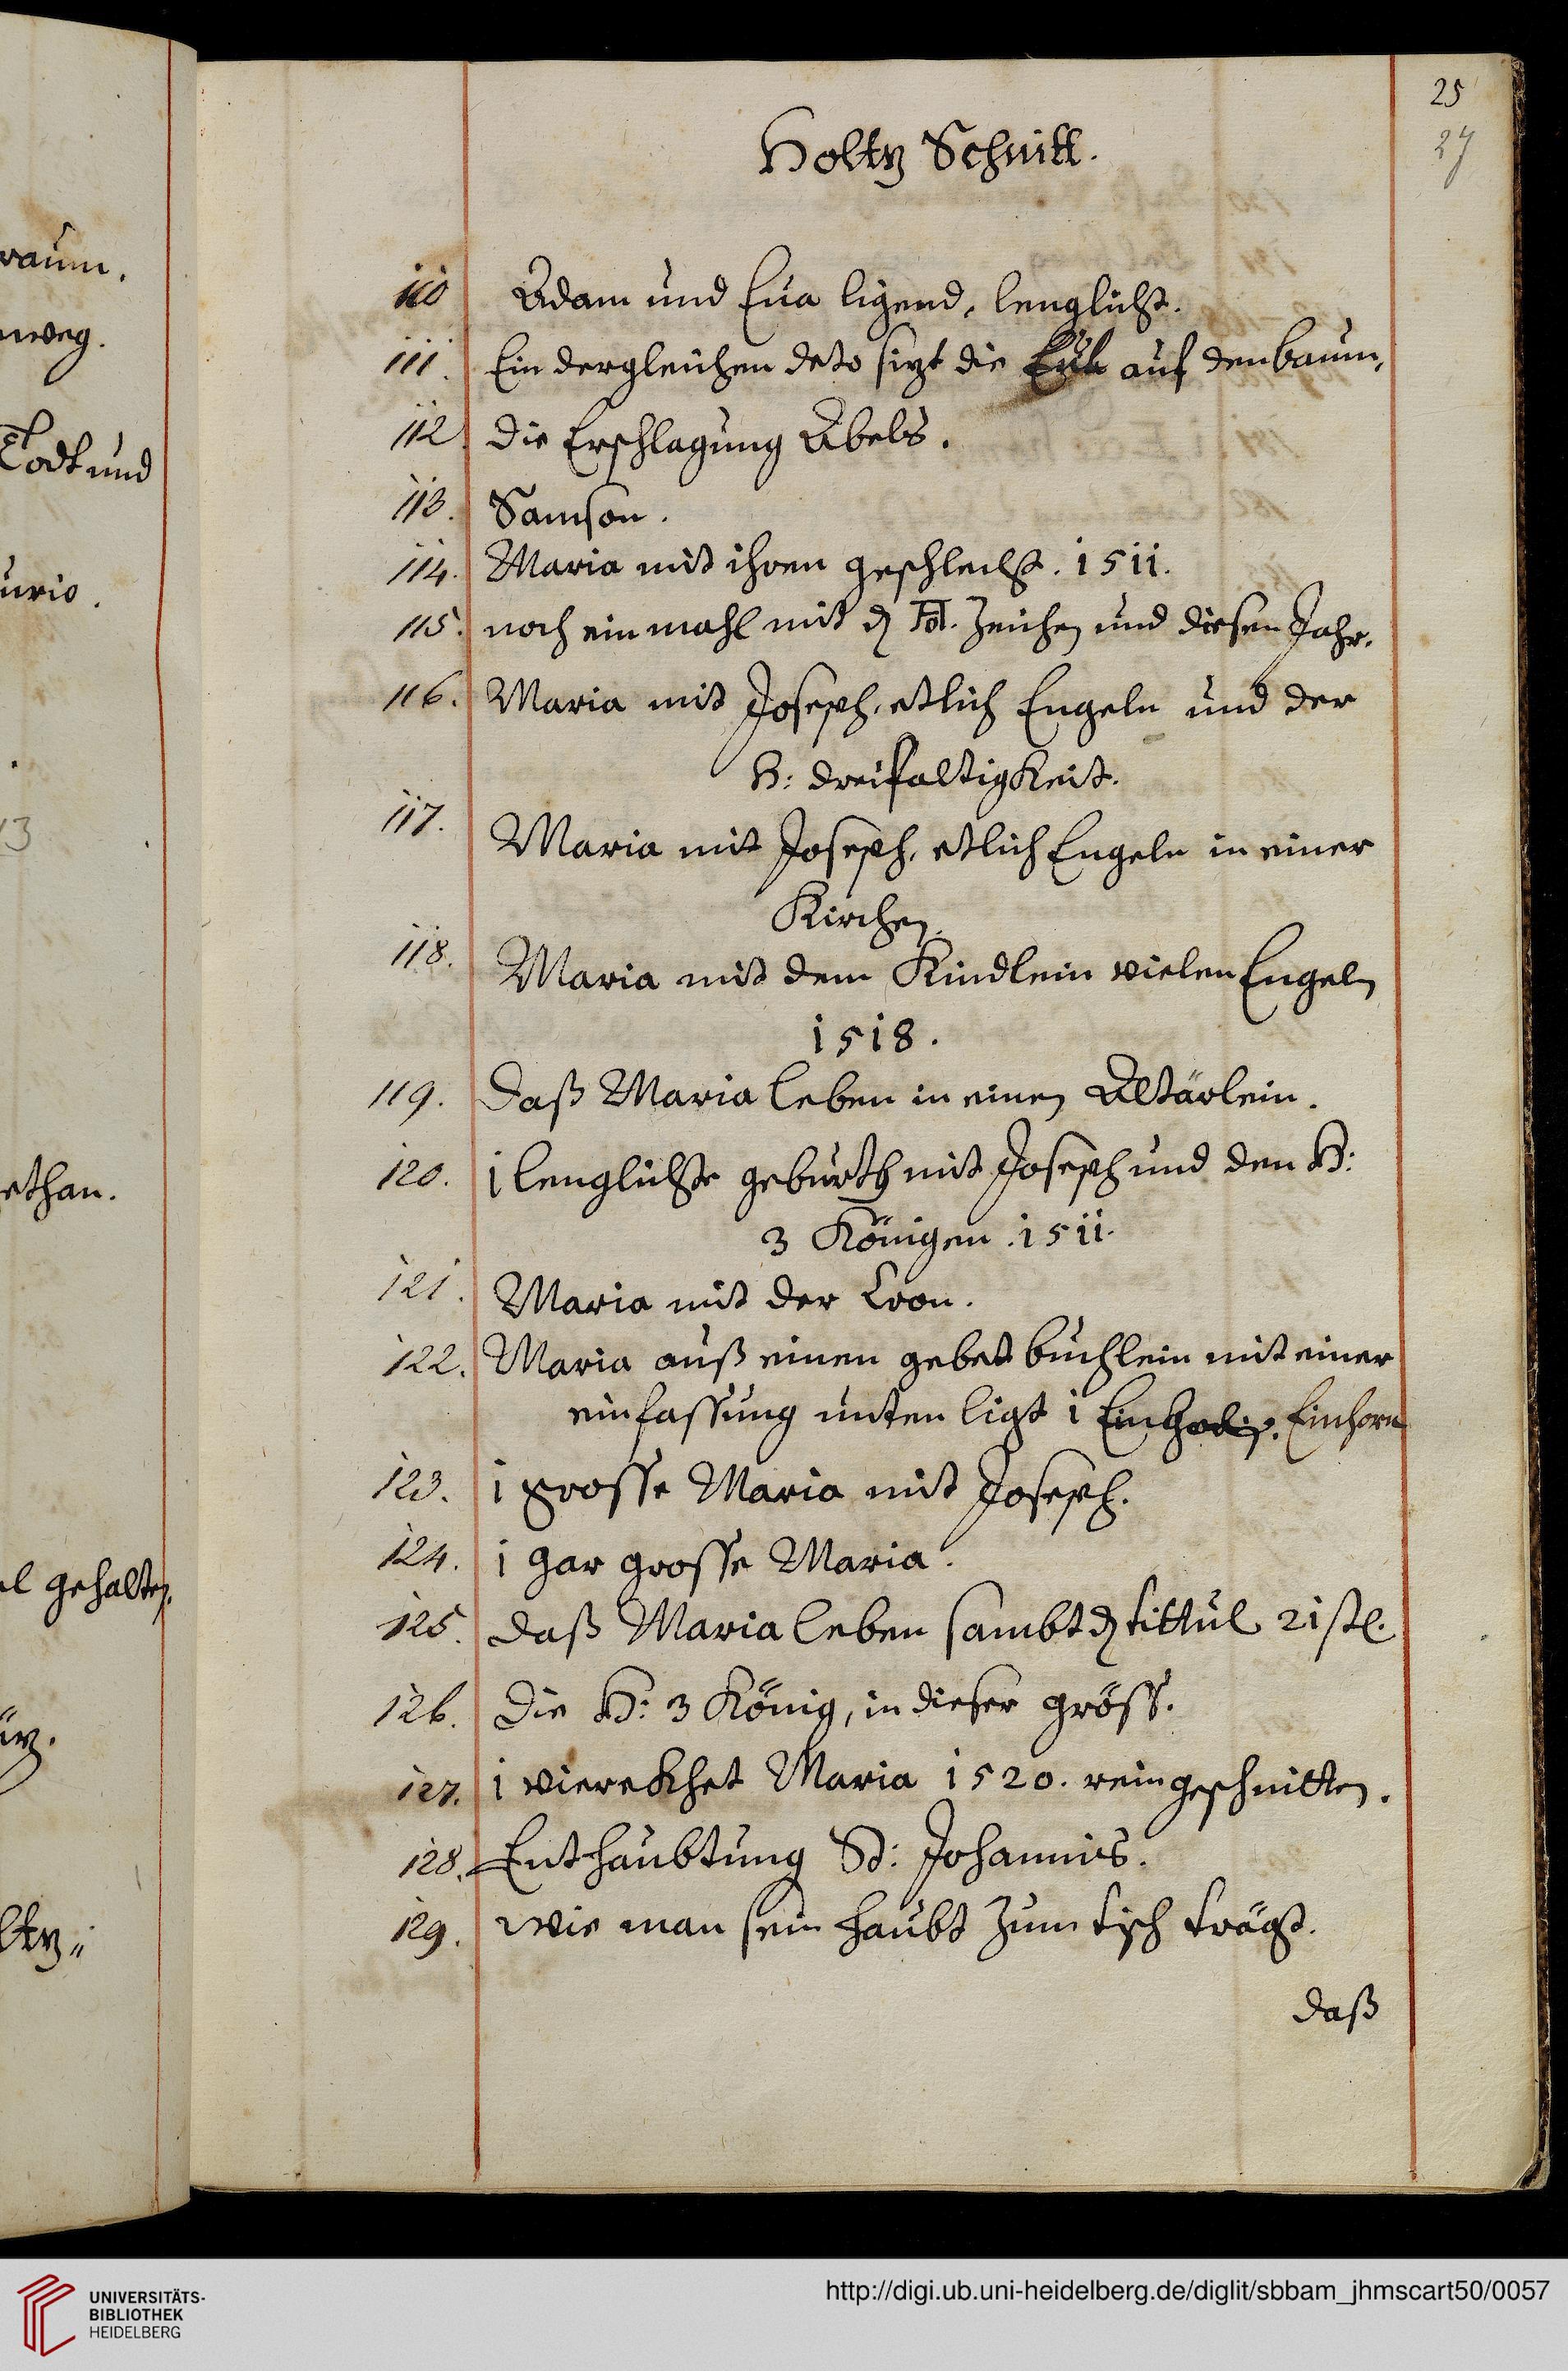 25
27
Holtz Schnitt.
110 Adam und Eua ligend, lenglicht.
111. Ein dergleichen deto sizt die Eül auf den baum,
112. die Erschlagung Abels.
113. Samson.
114. Maria mit ihren geschlecht. 1511.
115. noch ein mahl mit dem Zeichen und diesen Jahr.
116. Maria mit Joseph, etlich Engeln und der
H: dreifaltigkeit.
117. Maria mit Joseph, etlich Engeln in einer
Kirchen.
118. Maria mit dem Kindlein vielen Engeln
1518.
119. daß Maria leben in einen Altärlein.
120. 1 lenglichte geburth mit Joseph und den H:
3 Königen. 1511.
121. Maria mit der Cron.
122. Maria auß einen gebet büchlein mit einer
einfassung unten ligt 1 Einhorn
123. 1 grosse Maria mit Joseph.
124. 1 gar grosse Maria.
125. daß Maria leben sambt dem tittul 21 stl.
126. die H: 3 König, in dieser gröss.
127. 1 vierekhet Maria 1520. rein geschnitten.
128. Enthaubtung St: Johannis.
129. wie man sein haubt zum tisch trägt.
daß
raum.
weg.
Todt und
urio.
13
ethan.
l gehalten.
ltz
UNIVERSITÄTS-
BIBLIOTHEK
HEIDELBERG
http://digi.ub.uni-heidelberg.de/diglit/sbbam_jhmscart50/0057